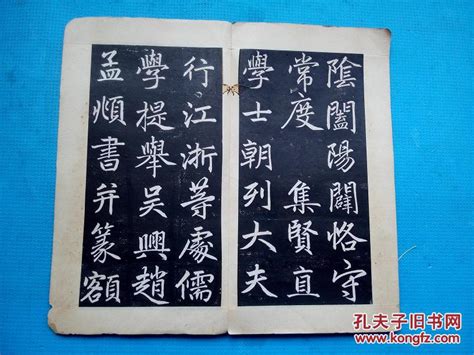 陰闔陽闢恪守
常度　集賢直
學士朝列大夫
行江浙等處儒
學提舉吳興趙
孟頫書并篆額
孔夫子旧书网
www.kongfz.com